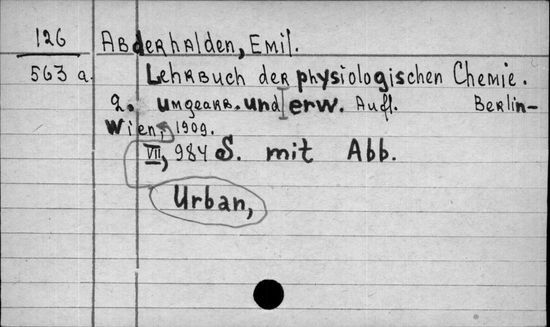 126 Abderhalden, Emil.
563 a. Lehrbuch der physiologischen Chemie.
2. umgearb. und erw. Aufl. Berlin-
Wien, 1909.
VII, 984 S. mit Abb.
Urban,